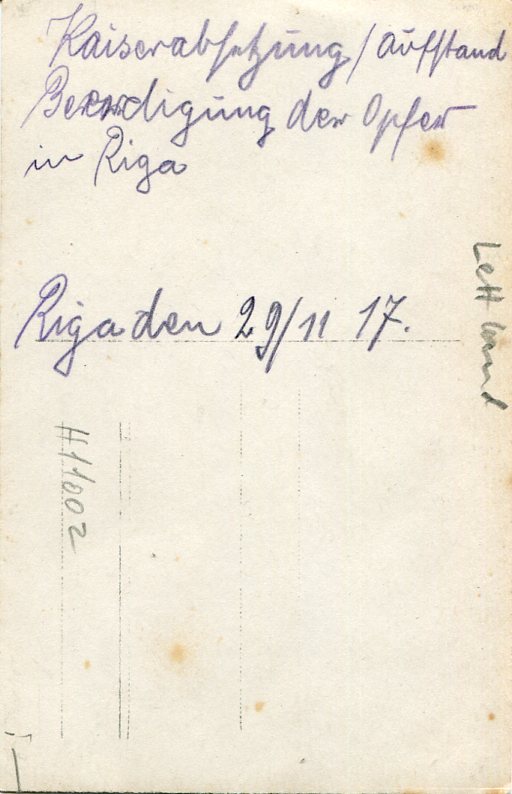 Kaiserabsetzung / Aufstand
Beerdigung der Opfer
in Riga
Lettland
Riga den 29/11 17.
H11002